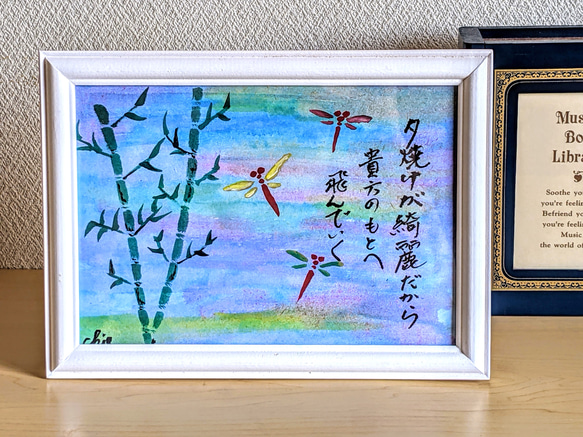 夕焼けが綺麗だから
貴方のもとへ
飛んでいく
Mus
Bo
Libra
Soothe yo
you're feelin
Befriend yo
you're feelin
Music
the world of